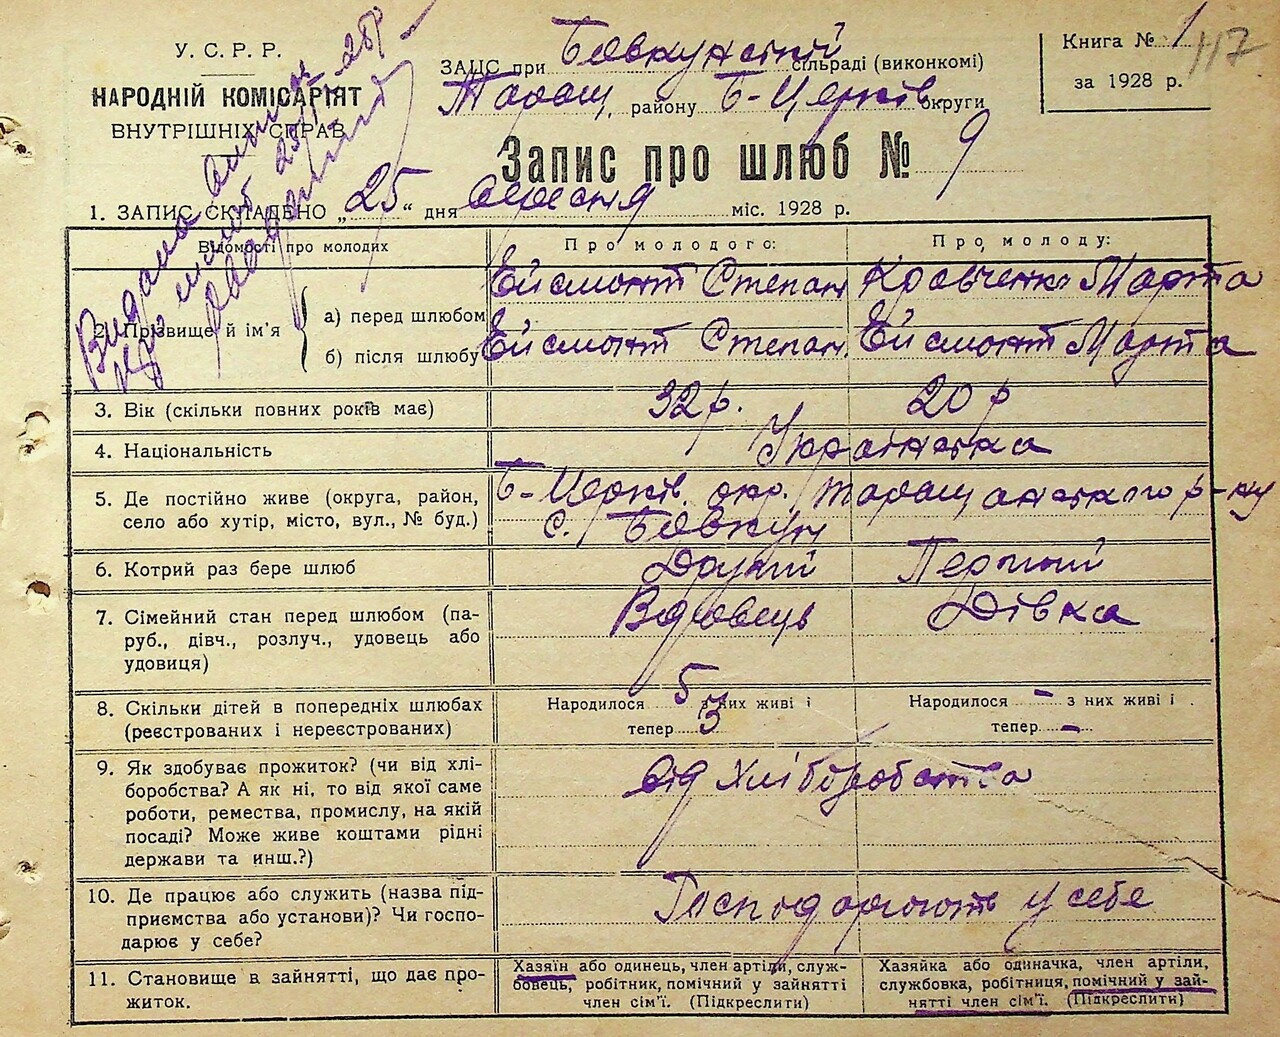 У. С. Р. Р.
НАРОДНІЙ КОМІСАРІЯТ
ВНУТРІШНІХ СПРАВ
ЗАГС при Бовкунській сільраді (виконкомі)
Таращ. району Б-Церків округи
Книга № 1
117
за 1928 р.
Запис про шлюб № 9
1. ЗАПИС СКЛАДЕНО „25“ дня вересня міс. 1928 р.
Видана
про шлюб
Відомості про молодих
Про молодого:
Про молоду:
2. Прізвище й ім'я
а) перед шлюбом
Ейсмонт Степан
Кравченко Марта
б) після шлюбу
Ейсмонт Степан
Ейсмонт Марта
3. Вік (скільки повних років має)
32 р.
20 р
4. Національність
Українська
5. Де постійно живе (округа, район,
село або хутір, місто, вул., № буд.)
Б-Церків. окр. Таращанського р-ну
с. Бовкун
6. Котрий раз бере шлюб
Другий
Перший
7. Сімейний стан перед шлюбом (па-
руб., дівч., розлуч., удовець або
удовиця)
Вдовець
Дівка
8. Скільки дітей в попередніх шлюбах
(реєстрованих і нереєстрованих)
Народилося 5 з них живі і
тепер 3
Народилося - з них живі і
тепер -
9. Як здобуває прожиток? (чи від хлі-
боробства? А як ні, то від якої саме
роботи, ремества, промислу, на якій
посаді? Може живе коштами рідні
держави та инш.?)
від Хліборобства
10. Де працює або служить (назва під-
приємства або установи)? Чи госпо-
дарює у себе?
Господарюють у себе
11. Становище в зайнятті, що дає про-
житок.
Хазяїн або одинець, член артіли, служ-
бовець, робітник, помічний у зайнятті
член сім'ї. (Підкреслити)
Хазяйка або одиначка, член артіли,
службовка, робітниця, помічний у зай-
нятті член сім'ї. (Підкреслити)